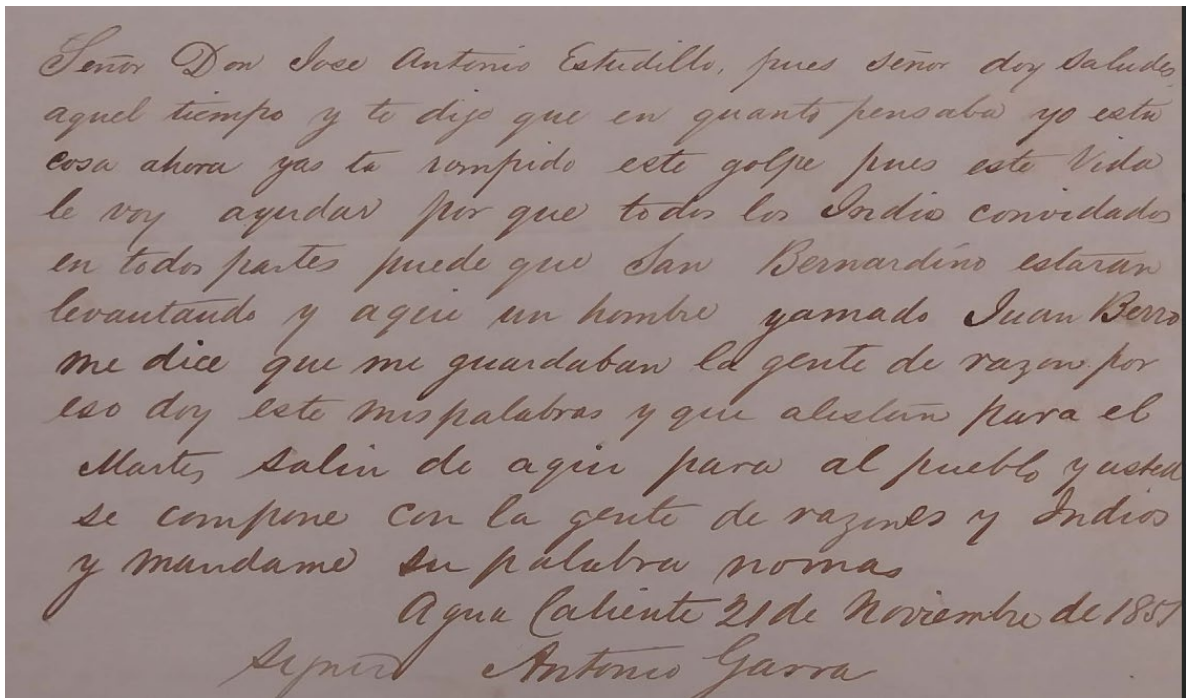 Señor Don Jose Antonio Estudillo, pues señor doy saludes
aquel tiempo y te digo que en quanto pensaba yo esta
cosa ahora yas ta rompido este golpe pues este Vida
le voy ayudar por que todos los Indio convidados
en todos partes puede que San Bernardino estaran
levantando y aqui un hombre yamado Juan Berro
me dice que me guardaban la gente de razon por
eso doy este mis palabras y que alistan para el
Martes salin de aqui para al pueblo y usted
se compone con la gente de razones y Indios
y mandame su palabra nomas
Agua Caliente 21 de Noviembre de 1851
Antonio Garra